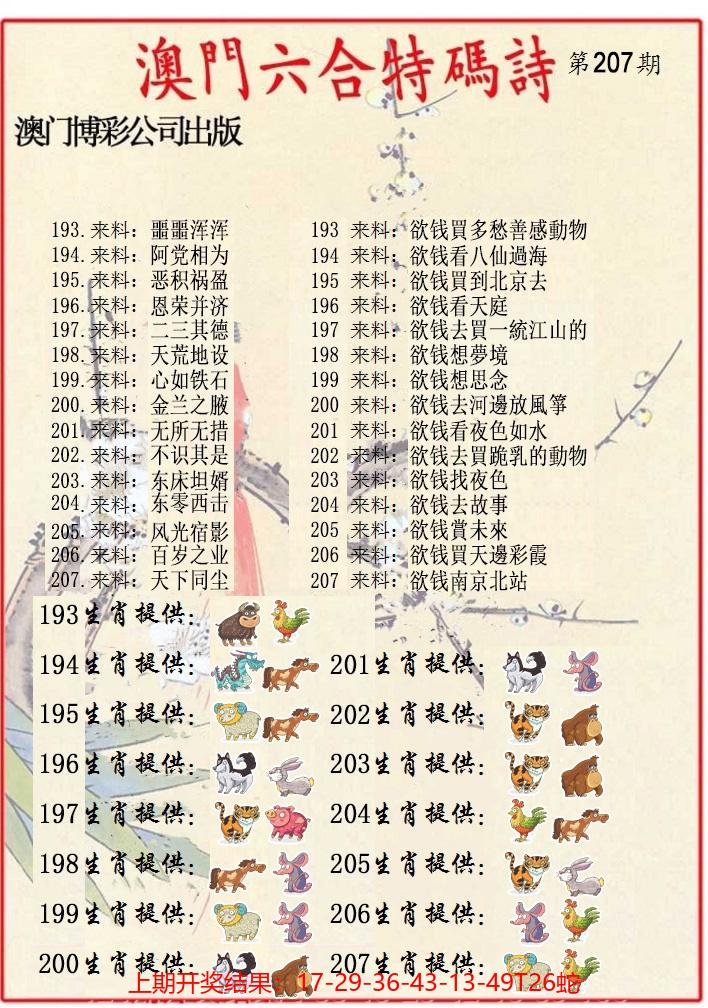 澳門六合特碼詩 第207期
澳门博彩公司出版
193.来料：噩噩浑浑
194.来料：阿党相为
195.来料：恶积祸盈
196.来料：恩荣并济
197.来料：二三其德
198.来料：天荒地设
199.来料：心如铁石
200.来料：金兰之腋
201.来料：无所无措
202.来料：不识其是
203.来料：东床坦婿
204.来料：东零西击
205.来料：风光宿影
206.来料：百岁之业
207.来料：天下同尘
193 来料：欲钱買多愁善感動物
194 来料：欲钱看八仙過海
195 来料：欲钱買到北京去
196 来料：欲钱看天庭
197 来料：欲钱去買一統江山的
198 来料：欲钱想夢境
199 来料：欲钱想思念
200 来料：欲钱去河邊放風箏
201 来料：欲钱看夜色如水
202 来料：欲钱去買跪乳的動物
203 来料：欲钱找夜色
204 来料：欲钱去故事
205 来料：欲钱賞未來
206 来料：欲钱買天邊彩霞
207 来料：欲钱南京北站
193生肖提供：
194生肖提供：
195生肖提供：
196生肖提供：
197生肖提供：
198生肖提供：
199生肖提供：
200生肖提供：
201生肖提供：
202生肖提供：
203生肖提供：
204生肖提供：
205生肖提供：
206生肖提供：
207生肖提供：
上期开奖结果：17-29-36-43-13-49T26蛇